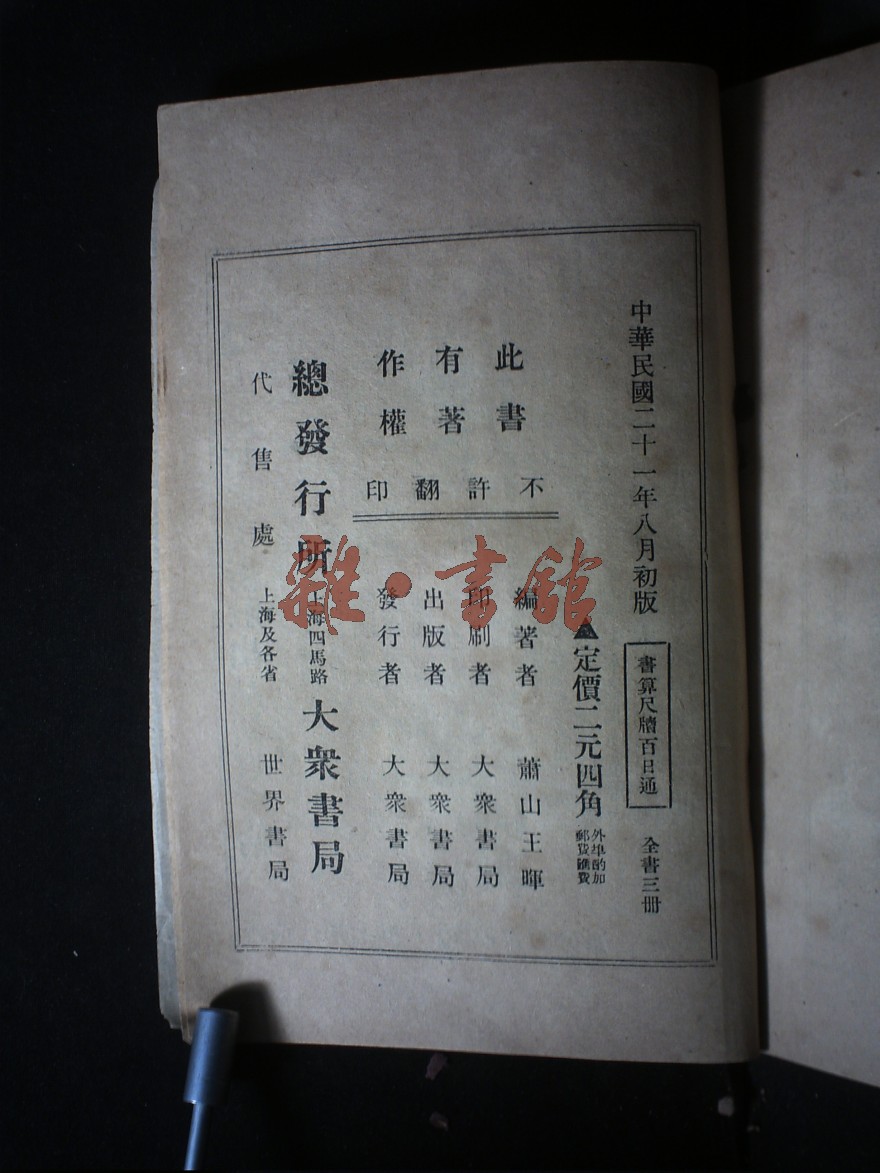 中華民國二十一年八月初版
書算尺牘百日通
全書三冊
▲定價二元四角
外埠酌加
郵費匯費
此書
有著
作權
不許翻印
編著者 蕭山王暉
印刷者 大衆書局
出版者 大衆書局
發行者 大衆書局
總發行所 上海四馬路 大衆書局
代售處 上海及各省 世界書局
雜·書館